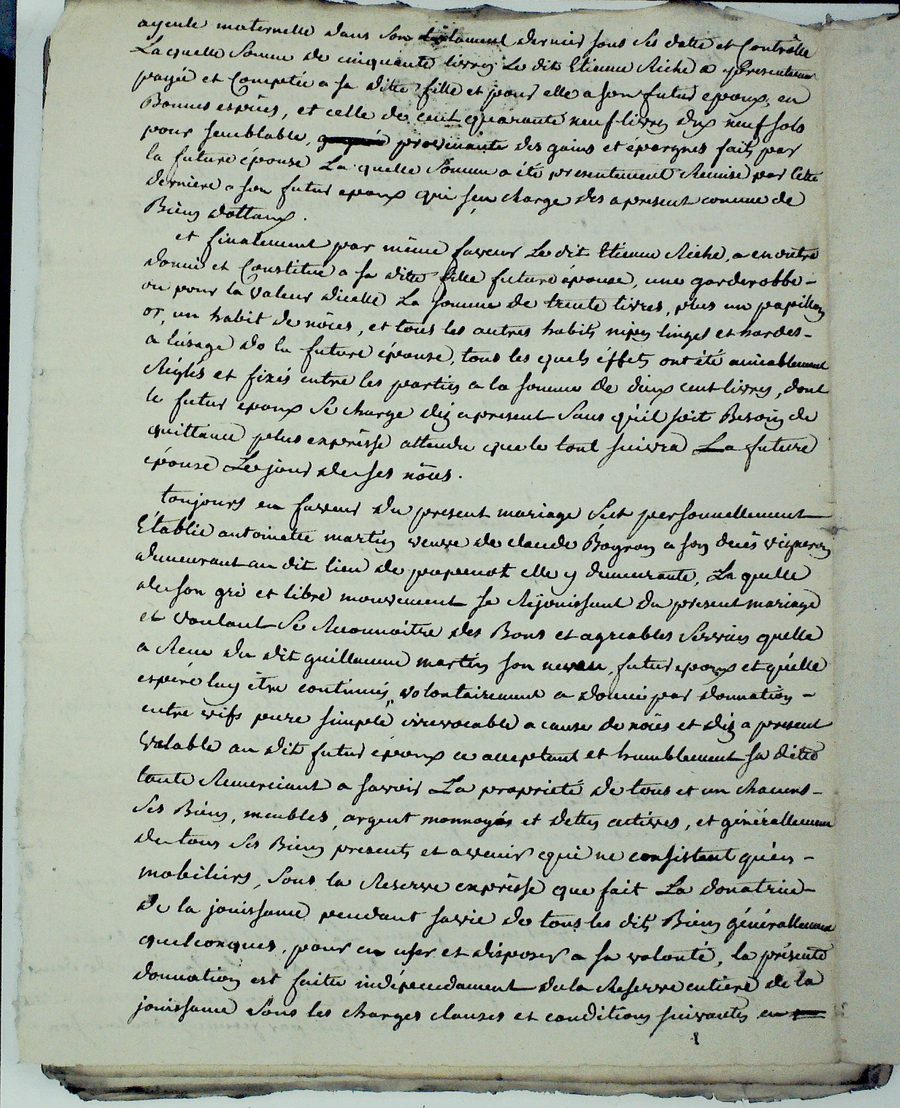 ayeule maternelle dans son testament dernier sous ses datte et Contrôlle
Laquelle Somme de cinquante livres Le dit Etienne Riche a presentement
payée et Comptée a sa ditte fille et pour elle a son futur epoux, en
Bonnes espèces, et celle de cent quarante neuf livres dix neuf sols
pour semblable, provenante des gains et epargnes faits par
la future épouse La quelle Somme a été presentement Remise par cette
derniere a son futur epoux qui s'en charge des apresent comme de
Biens dottaux.
et finalement par même faveur Le dit Etienne Riche, a en outre
donné et Constitué a sa ditte fille future épouse, une garderobbe -
ou pour la valeur d'icelle La somme de trente livres, plus un papillon
or, un habit de nôces, et tous les autres habits nipes linges et hardes -
a l'usage de la future épouse, tous les quels éffets ont été amiablement
Réglés et fixés entre les parties a la somme de deux cent livres, dont
le futur epoux se charge dez apresent Sans qu'il soit Besoin de
quittance plus expresse attendu que le tout suivra La future
épouse Le jour de ses nôces.
toujours en faveur du present mariage s'est personnellement
Etablie antoinette martin veuve de claude Bognon a son decés vigneron
demeurant au dit lieu de elle y demeurante, La quelle
de son gré et libre mouvement se Réjouissant du present mariage
et voulant Se Reconnaitre des Bons et agreables Services quelle
a Receu du dit guillaume martin son neveu, futur epoux et qu'elle
espere luy être continués, volontairement a donné par donnation -
entre vifs pure simple irrevocable a cause de nôces et dez a present
Valable au dit futur époux ce acceptant et humblement sa ditte
tante Remerciant a savoir La proprieté de tous et un chacuns -
Ses Biens, meubles, argent monnoyés et dettes actives, et générallement
De tous Ses Biens presents et avenir qui ne consistent qu'en -
mobiliers, Sous la Reserve expresse que fait La donatrice
De la jouissance pendant sa vie de tous les dits Biens générallement
quelconques, pour en user et disposer a sa volonté, la présente
donnation est faite indépendament de la Reserve entiere de la
jouissance Sous les charges clauses et conditions suivantes en